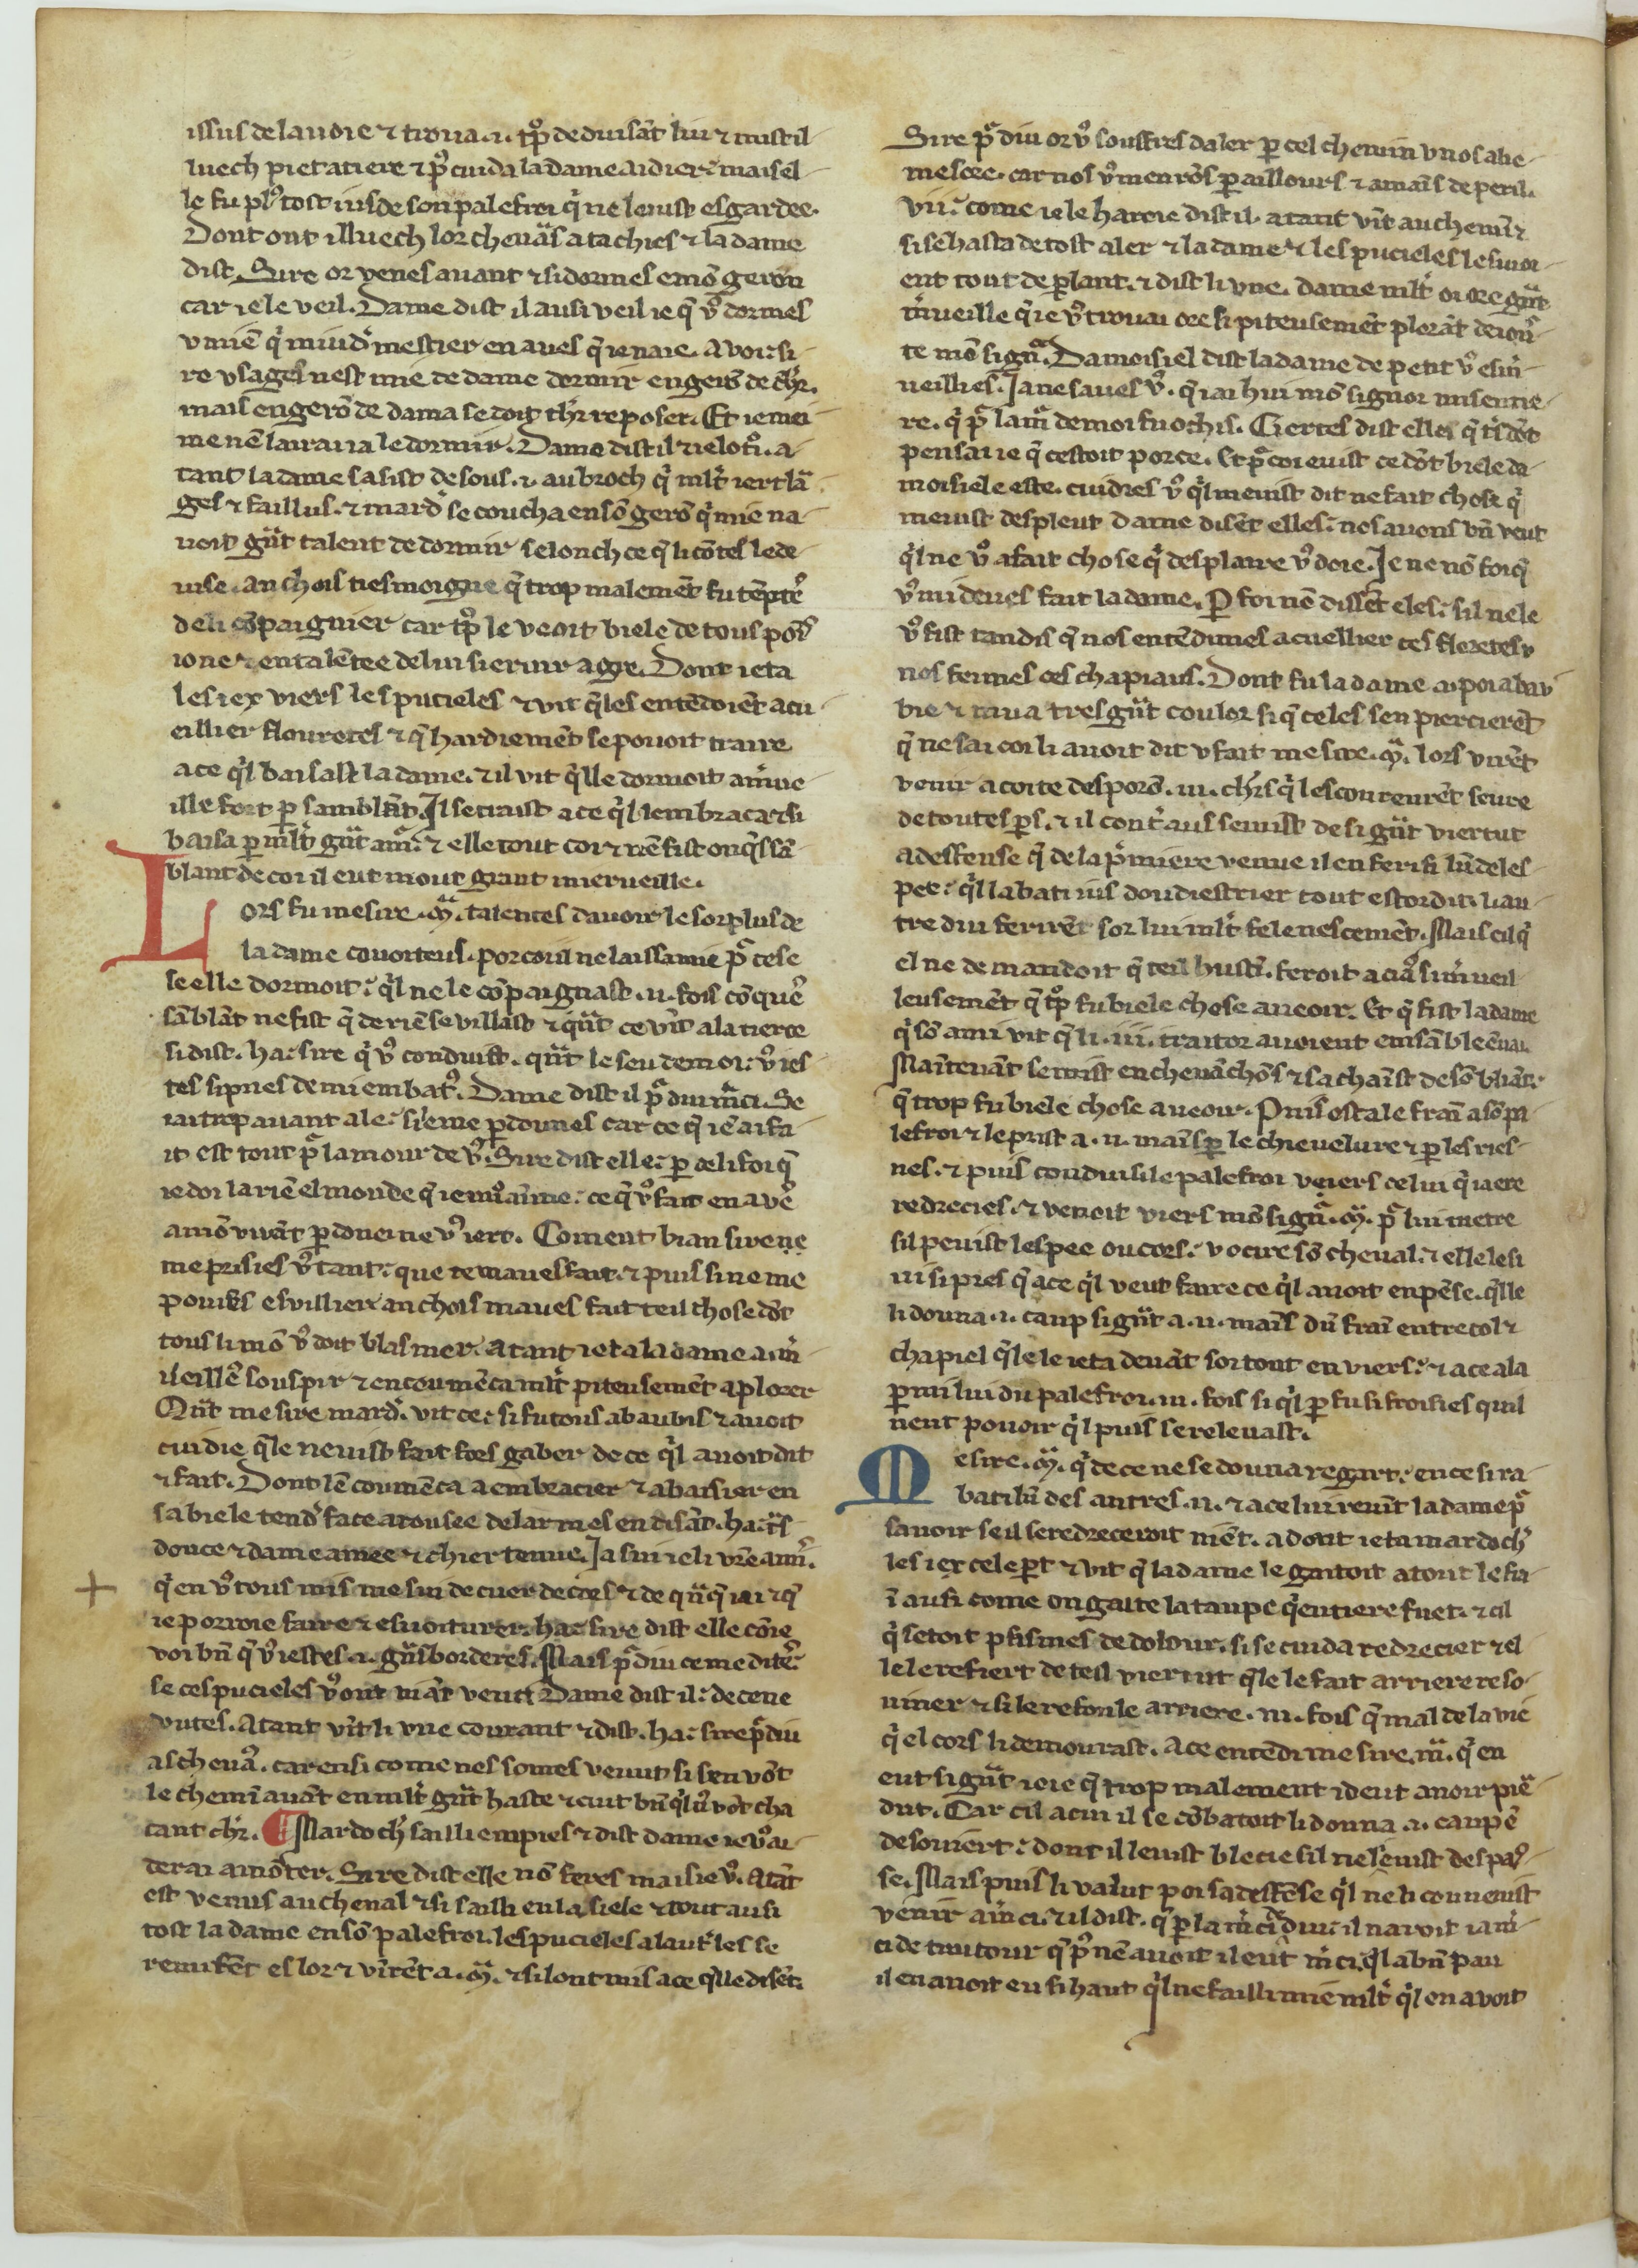 issus de la uoie ⁊ troua .i. tp̃o de duisãt lui ⁊ mist il
luech piet a tiere ⁊ pͦ cuida la dame aidier mais el
le fu plꝰ tost ius de son palefroi q̃ ne leuist esgardee.
Dont ont illuech lor cheuaꝰs atachies ⁊ la dame
dist. Sire or uenes auant ⁊ si dormes e mõ geron
car ie le veil. Dame dist il ausi veil ie q̃ vꝰ dormes
v miẽ q̃ miudꝰ mestier en aues q̃ ie naie. A voir si
re vsages nest mie de dame dormir en gerõ de chr̃.
mais en gerõ de dama se doit chr̃ reposer. Et ie mei
me nẽ lairai ia le dormir. Dame dist il ⁊ ie lotri. a
tant la dame sasist desous .i. aubroch q̃ mlt̃ iert lã
ges ⁊ faillus. ⁊ mardꝰ se coucha en sõ gerõ q̃ mie na
uoit gñt talent de dormir selonch ce q̃ li cõtes le de
uise. anchois tiesmoigne q̃ trop malemẽt fu tẽptes
de li cõpaignier car tp̃o le veoit biele de tous poĩs
ione ⁊ entalẽtee de lui seruir a gre. Dont ieta
les iex viers les pucieles ⁊ vit q̃les entẽdoiẽt a cu
eillier flouretes ⁊ q̃ hardiemẽt se pouoit traire
a ce q̃l baisast la dame. ⁊ il vit q̃lle dormoit a m̃ue
ille fort p̱ samblãt. Il se traist a ce q̃l lembraca ⁊ si
baisa p̱ mlt̃ gñt am̃ ⁊ elle tout coi ⁊ riẽ fist onq̃s sã
blant de coi il eut mout grant merueille.
Lors fu mesire .mã. talentes dauoir le sorplus de
la dame couoiteus. por coi il ne laissa mie pᷓ ce se
se elle dormoit q̃l ne le cõpaignast .ii. fois cõques
sãblãt ne fist q̃ de riẽ se villast ⁊ q̃nt ce vĩt a la tierce
si dist. ha sire q̃ vꝰ conduist. q̃nt le seu de moi vꝰ ies
tes si pnes de mi embatꝰ. Dame dist il pᷓ diu m̃ci. Se
iai trop auant ale si le me p̱dounes car ce q̃ ie ai fa
it est tout pᷓ lamour de vꝰ. Sire dist elle p̱ deli foi q̃
ie doi la riẽ el monde q̃ ie miꝰ aime ce q̃ vꝰ fait en aues
a mõ viuãt p̱done ne vꝰ iert. Coment biau sire ne
me prisies vꝰ tant que ce maues fait. ⁊ puis si ne me
pouies esvillier anchois maues fait teil chose dõt
tous li mõ vꝰ doit blasmer. Atant ieta la dame .i. m̃
ueilles souspir ⁊ en coumẽca mlt̃ piteusemẽt a plorer
Qñt mesire mardꝰ. vit ce si fu tous abaubis ⁊ auoit
cuidie q̃le neuist fait fors gaber de ce q̃l auoit dit
⁊ fait. Dont lẽ coumẽca a embracier ⁊ a baisier en
sa biele tendꝰ face arousee de larmes en disãt. ha tr̃s
douce ⁊ dame amee ⁊ chier tenue. Ia sui ie li vr̃e amĩ.
q̃ en vꝰ tous mis me sui de cuer de cors ⁊ de q̃nq̃ iai ⁊ q̃
ie poroie faire ⁊ esuoiturer. ha sire dist elle cõie
voi bñ q̃ vꝰ iestes .i. grñs borderes. Mais pᷓ diu ce me dites
se ces pucieles vꝰ ont niẽt veut. Dame dist il de ce ne
dutes. Atant vĩt li vne courant ⁊ dist. ha sire pᷓ diu
as cheuaꝰ. car ensi come nes somes venut si sen võt
le chemĩ auãt en mlt̃ gñt haste ⁊ cuit bñ q̃l vꝰ võt cha
cant chr̃. ¶ Mardochꝰ sailli em pies ⁊ dist dame ie vꝰ ai
derai a mõter. Sire dist elle nõ feres mais ie vꝰ. Atãt
est venus au cheual ⁊ si saisi en la siele ⁊ tout ausi
tost la dame en sõ palefroi. les pucieles a laut̃ les se
remisẽt es lor ⁊ virẽt a .mã. ⁊ si lont mis a ce q̃lle disẽt.
Sire pᷓ diu or vꝰ souffres daler p̱ cel chemin v nos abe
mescee. car nos vꝰ menrõs p̱ aillours ⁊ a mains de peril.
vii. come ie le harcie dist il. atant vĩt au chemĩ ⁊
si se hasta de tost aler ⁊ la dame ⁊ les pucieles le siuoi
ent tout de p̱lant. ⁊ dist li vne. dame mlt̃ oi ore gñt
m̃ueille q̃ ie vꝰ trouai ore si piteusemẽt plorãt de iou
te mõ signᷓ. Damoisiel dist la dame de petit vꝰ esm̃
ueillies. Ja ne saues vꝰ. q̃ iai hui mõ signor mis en tie
re. q̃ pᷓ lam̃ de moi fu ochis. Ciertes dist elles q̃ tr̃s dõt
pensai ie q̃ cestoit por ce. Et pᷓ coi euist ce dõt biele da
moisiele este. cuidies vꝰ q̃l meuist dit ne fait chose q̃
meuist despleut Dame disẽt elles nos auons bñ veut
q̃l ne vꝰ a fait chose q̃ desplaire vꝰ doie. Je ne nõ foi q̃
vꝰ mi deues fait la dame. P̱ foi nõ dissẽt eles sil ne le
vꝰ fist tandis q̃ nos entẽdimes a cuellier ces floretes v
nos feimes ces chapiaus. Dont fu la dame .i. poi abau
bie ⁊ mua tres gñt coulor si q̃ celes sen piercierẽt
q̃ ne sai coi li auoit dit v fait mesire .mã. lors virẽt
venir a coite desporõ .iii. chrs̃ q̃ les coururẽt seure
de toutes p̱s. ⁊ il contr̃ aus se mist de si gñt viertut
a desfense q̃ de la p̃miere venue il en feri si lũ de les
pee q̃l labati ius dou diestrier tout estordit. li au
tre dui ferirẽt sor lui mlt̃ felenescemẽt. Mais cil q̃
el ne demandoit q̃ teil hustĩ. feroit a ciaꝰ si m̃ueil
leusemẽt q̃ tp̃o fu biele chose a veoir. Et q̃ fist la dame
q̃ sõ ami vit q̃ li .iii. traitor auoient ensãble enuai.
Maĩtenãt se mist en cheuachõs ⁊ sachaĩst de sõ bliaut.
q̃ trop fu biele chose a veoir. Puis osta le fraĩ a sõ pa
lefroi ⁊ le prist a .ii. maĩs p̱ le chieuelure ⁊ p̱ les ries
nes. ⁊ puis conduisi le palefroi veiers celui q̃ iaere
redrecies. ⁊ venoit viers mõ signᷓ .mã. pᷓ lui metre
sil peuist lespee ou cors. v ocire sõ cheual. ⁊ elle le si
ui si pres q̃ a ce q̃l veut faire ce q̃l auoit enpẽse. q̃lle
li douna .i. caup si gñt a .ii. maĩs dũ fraĩ entre col ⁊
chapiel q̃le le ieta deuãt sor tout enviers ⁊ a ce ala
p̱ mi lui du palefroi .iii. fois si q̃l p̱ fu si froisies quil
neut pouoir q̃l puis se releuast.
Mesire .mã. q̃ de ce ne se douna regart. en ce si ra
bati lũ des autres .ii. ⁊ a celui reuĩt la dame pᷓ
sauoir se il se redreceroit niẽt. adont ieta mardochꝰ
les iex cele p̱t ⁊ vit q̃ la dame le gaitoit a tout le fra
ĩ ausi come on gaite la taupe q̃ en tiere fuet. ⁊ cil
q̃ setoit pasmes de dolour. si se cuida redrecier ⁊ el
le le refiert de tel viertut q̃le le fait arriere reso
uiner ⁊ si le refoule arriere .iii. fois q̃ mal de la vie
q̃ el cors li demourast. A ce entẽdi mesire .mã. q̃ en
eut si gñt ioie q̃ trop malement i deut auoir piẽ
dut. Car cil a cui il se cõbatoit li douna .i. caup ẽ
desouuert dont il leuist blecie sil ne seuist despas
se. Mais puis li valut poi sa desfẽse q̃l ne li couuenist
venir a m̃ci. ⁊ il dist. q̃ p̱ la m̃ci diu il naroit iam̃
ci de traitour q̃ pꝰ nẽ auoit il eut m̃ci. q̃l a bñ pau
il en auoit eu si haut q̃l ne failli mie mlt̃ q̃l en avoit